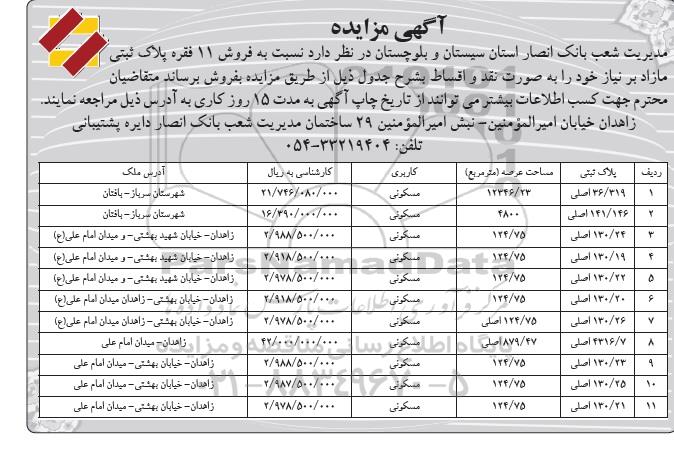 آگهی مزایده
مدیریت شعب بانک انصار استان سیستان و بلوچستان در نظر دارد نسبت به فروش ۱۱ فقره پلاک ثبتی
مازاد بر نیاز خود را به صورت نقد و اقساط بشرح جدول ذیل از طریق مزایده بفروش برساند متقاضیان
محترم جهت کسب اطلاعات بیشتر می توانند از تاریخ چاپ آگهی به مدت ۱۵ روز کاری به آدرس ذیل مراجعه نمایند.
زاهدان خیابان امیرالمؤمنین- نبش امیرالمؤمنین ۲۹ ساختمان مدیریت شعب بانک انصار دایره پشتیبانی
تلفن: ۳۳۲۱۹۴۰۴-۰۵۴
ردیف پلاک ثبتی مساحت عرصه (مترمربع) کاربری کارشناسی به ریال آدرس ملک
۱ ۳۶/۳۱۹ اصلی ۱۲۳۴۶/۲۳ مسکونی ۲۱/۷۴۶/۰۸۰/۰۰۰ شهرستان سرباز- بافتان
۲ ۱۴۱/۱۴۶ اصلی ۴۸۰۰ مسکونی ۱۶/۳۹۰/۰۰۰/۰۰۰ شهرستان سرباز- بافتان
۳ ۱۳۰/۲۴ اصلی ۱۲۴/۷۵ مسکونی ۲/۹۸۸/۵۰۰/۰۰۰ زاهدان- خیابان شهید بهشتی- و میدان امام علی(ع)
۴ ۱۳۰/۱۹ اصلی ۱۲۴/۷۵ مسکونی ۲/۹۱۸/۵۰۰/۰۰۰ زاهدان- خیابان شهید بهشتی- و میدان امام علی(ع)
۵ ۱۳۰/۲۲ اصلی ۱۲۴/۷۵ مسکونی ۲/۹۷۸/۵۰۰/۰۰۰ زاهدان- خیابان شهید بهشتی- و میدان امام علی(ع)
۶ ۱۳۰/۲۰ اصلی ۱۲۴/۷۵ مسکونی ۲/۹۱۸/۵۰۰/۰۰۰ زاهدان- خیابان بهشتی- زاهدان میدان امام علی(ع)
۷ ۱۳۰/۲۶ اصلی ۱۲۴/۷۵ اصلی مسکونی ۲/۹۷۸/۵۰۰/۰۰۰ زاهدان- خیابان بهشتی- زاهدان میدان امام علی(ع)
۸ ۴۳۱۶/۷ اصلی ۸۷۹/۴۷ اصلی مسکونی ۴۲/۰۰۰/۰۰۰/۰۰۰ زاهدان- میدان امام علی
۹ ۱۳۰/۲۳ اصلی ۱۲۴/۷۵ مسکونی ۲/۹۸۸/۵۰۰/۰۰۰ زاهدان- خیابان بهشتی- میدان امام علی
۱۰ ۱۳۰/۲۵ اصلی ۱۲۴/۷۵ مسکونی ۲/۹۸۷/۵۰۰/۰۰۰ زاهدان- خیابان بهشتی- میدان امام علی
۱۱ ۱۳۰/۲۱ اصلی ۱۲۴/۷۵ مسکونی ۲/۹۷۸/۵۰۰/۰۰۰ زاهدان- خیابان بهشتی- میدان امام علی
ParsNamadData
پایگاه اطلاع رسانی مناقصه و مزایده